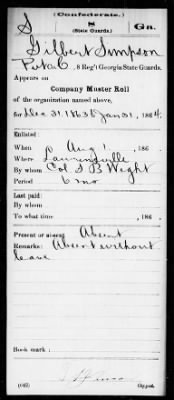 (Confederate.)
S 8 Ga.
(State Guards.)
Gilbert Simpson
Pvt. Co. C, 8 Reg't Georgia State Guards.
Appears on
Company Muster Roll
of the organization named above,
for Dec 31, 1863 to Jan 31, 1864.
Enlisted:
When Aug 1, 186 .
Where Lawrenceville
By whom Col J B Wight
Period 6 mo
Last paid:
By whom
To what time , 186 .
Present or absent Absent
Remarks: Absent without
leave
Book mark:
(642) Copyist.